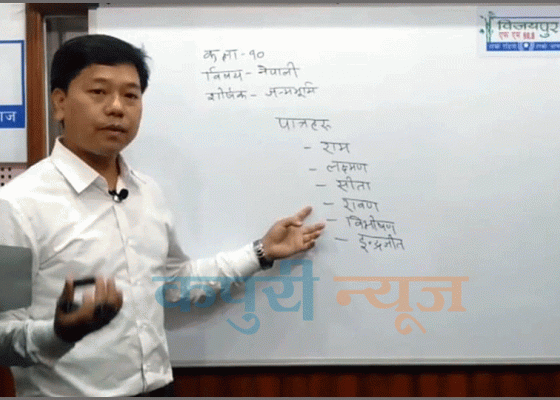 कक्षा - १०
विषय - नेपाली
शीर्षक - जन्मभूमि
पात्रहरू
- राम
- लक्ष्मण
- सीता
- रावण
- विभीषण
- इन्द्रजीत
विजयपुर
एफ एम 98.8
कपुरी न्यूज